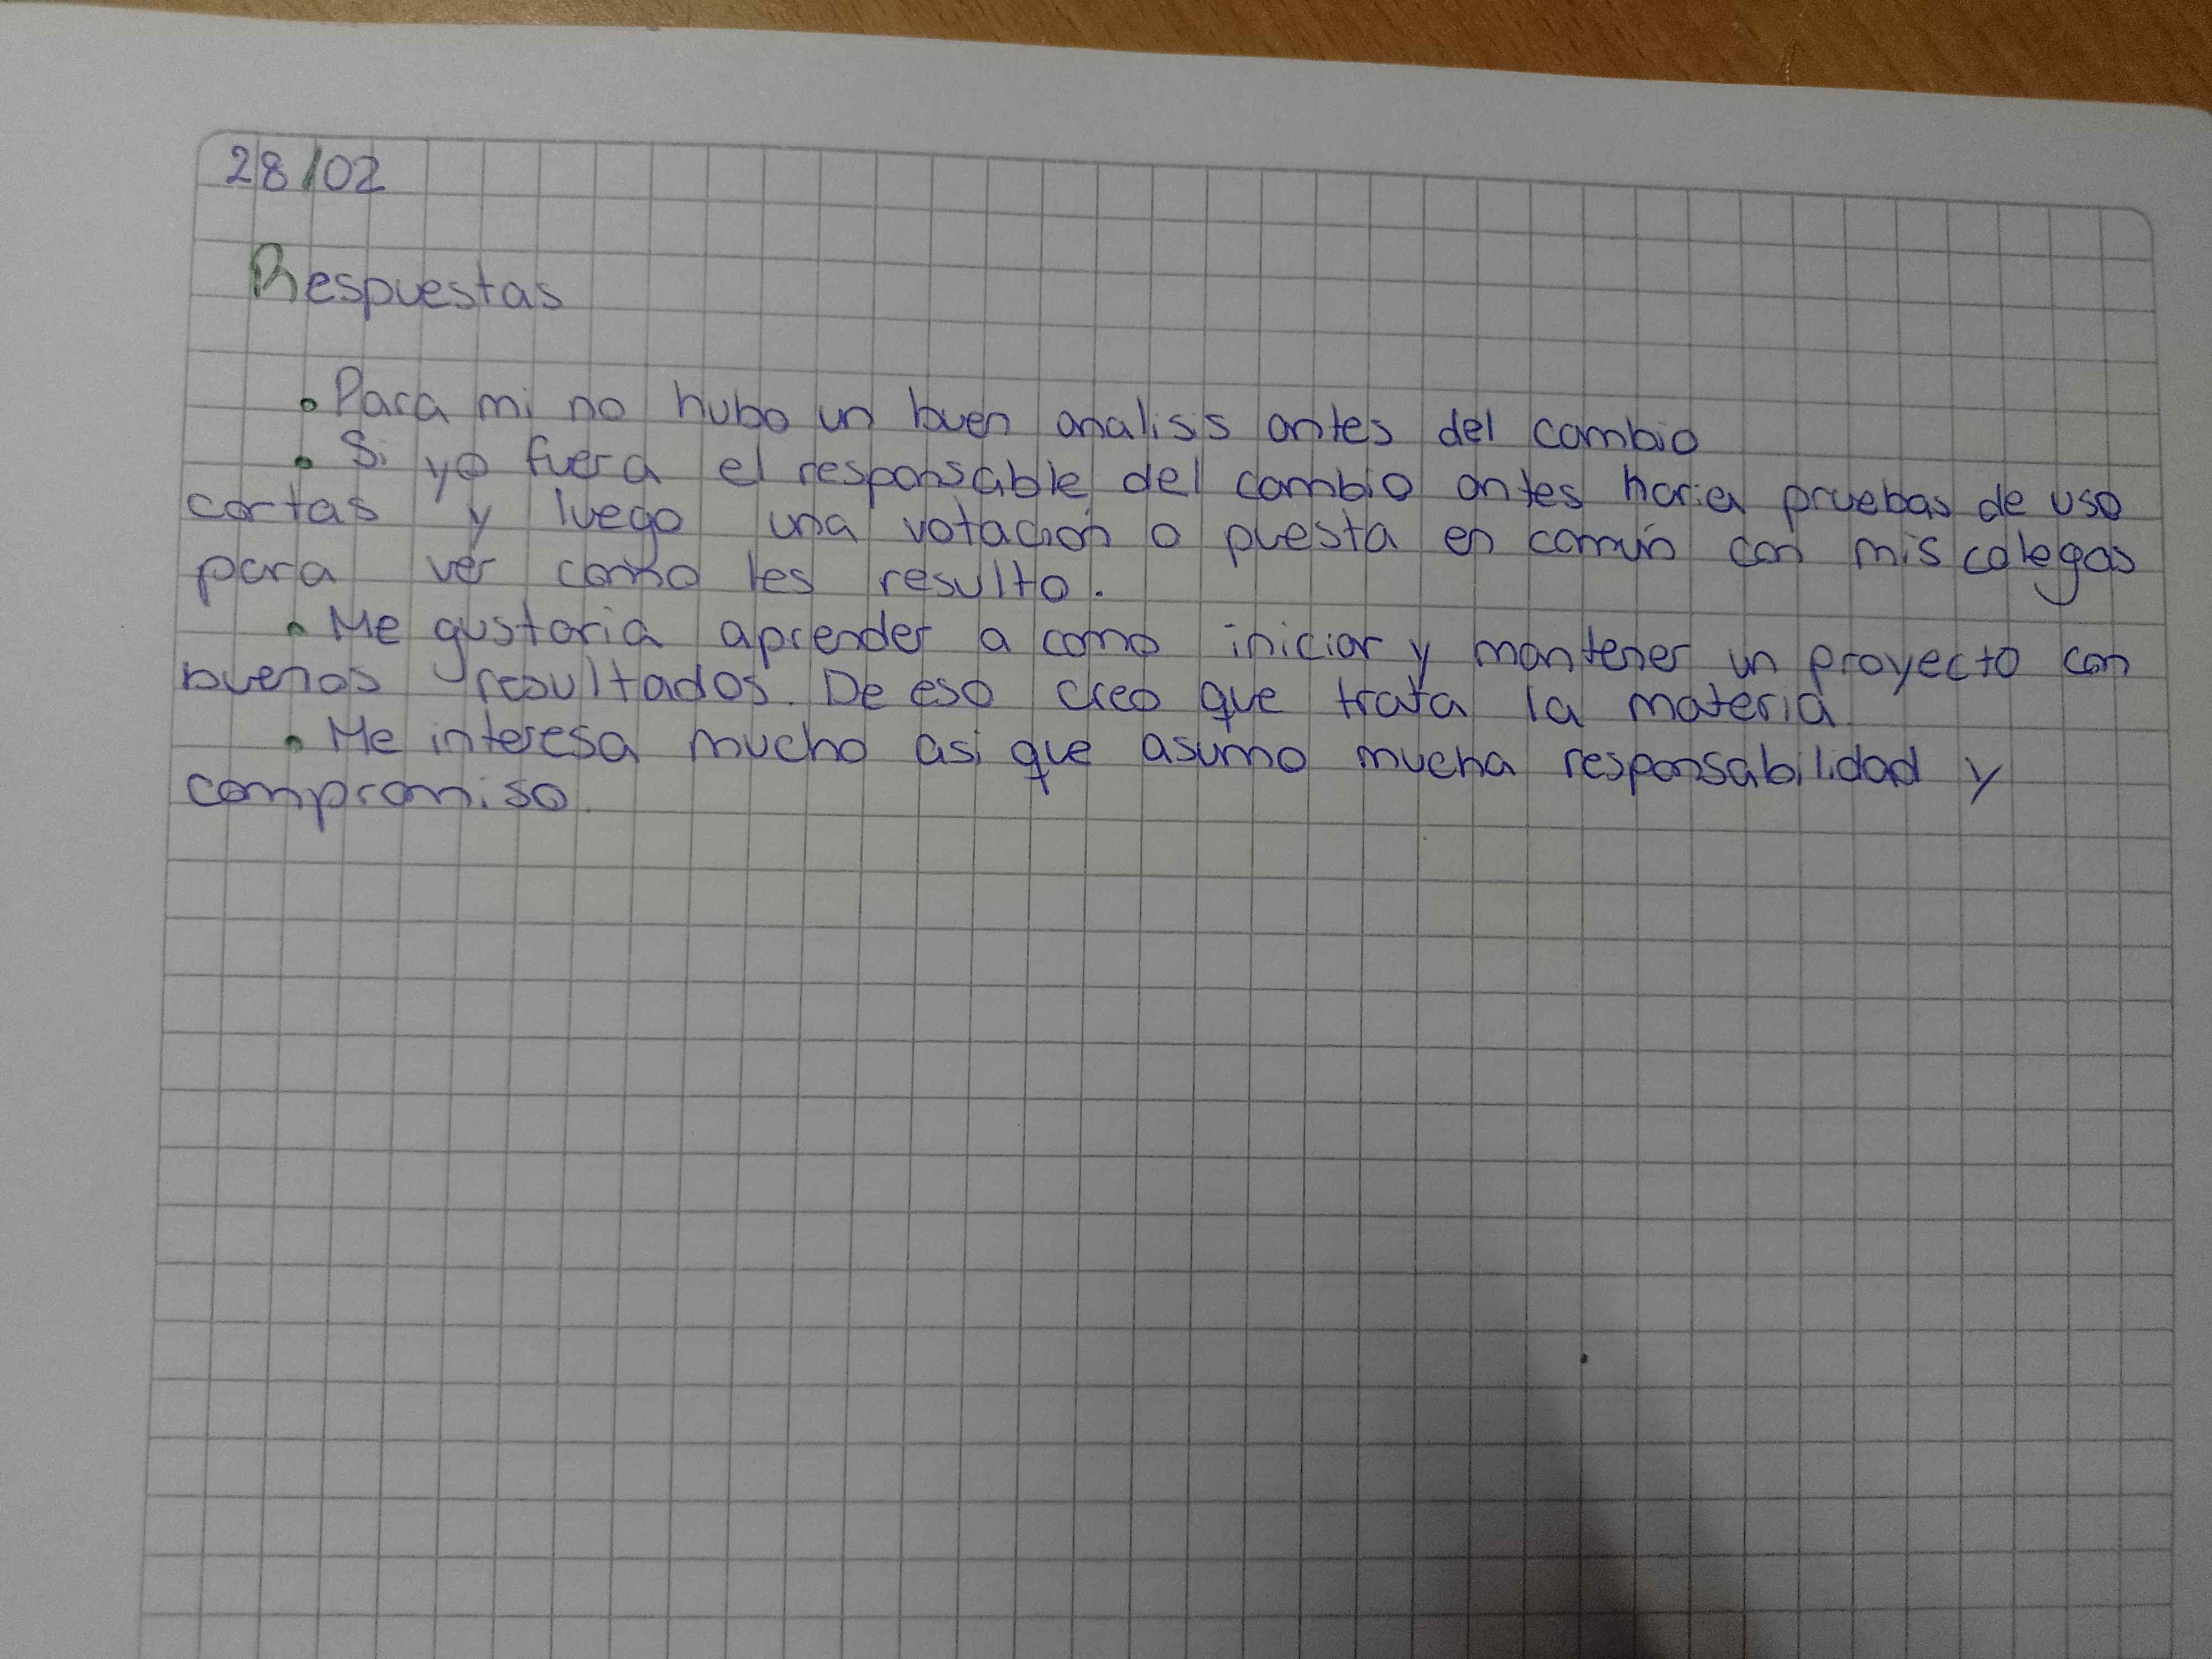 28/02
Respuestas
• Para mi no hubo un buen analisis antes del cambio
• Si yo fuera el responsable del cambio antes haria pruebas de uso
cortas y luego una votación o puesta en común con mis colegas
para ver como les resulto.
• Me gustaria aprender a como iniciar y mantener un proyecto con
buenos resultados. De eso creo que trata la materia
• Me interesa mucho asi que asumo mucha responsabilidad y
compromiso.